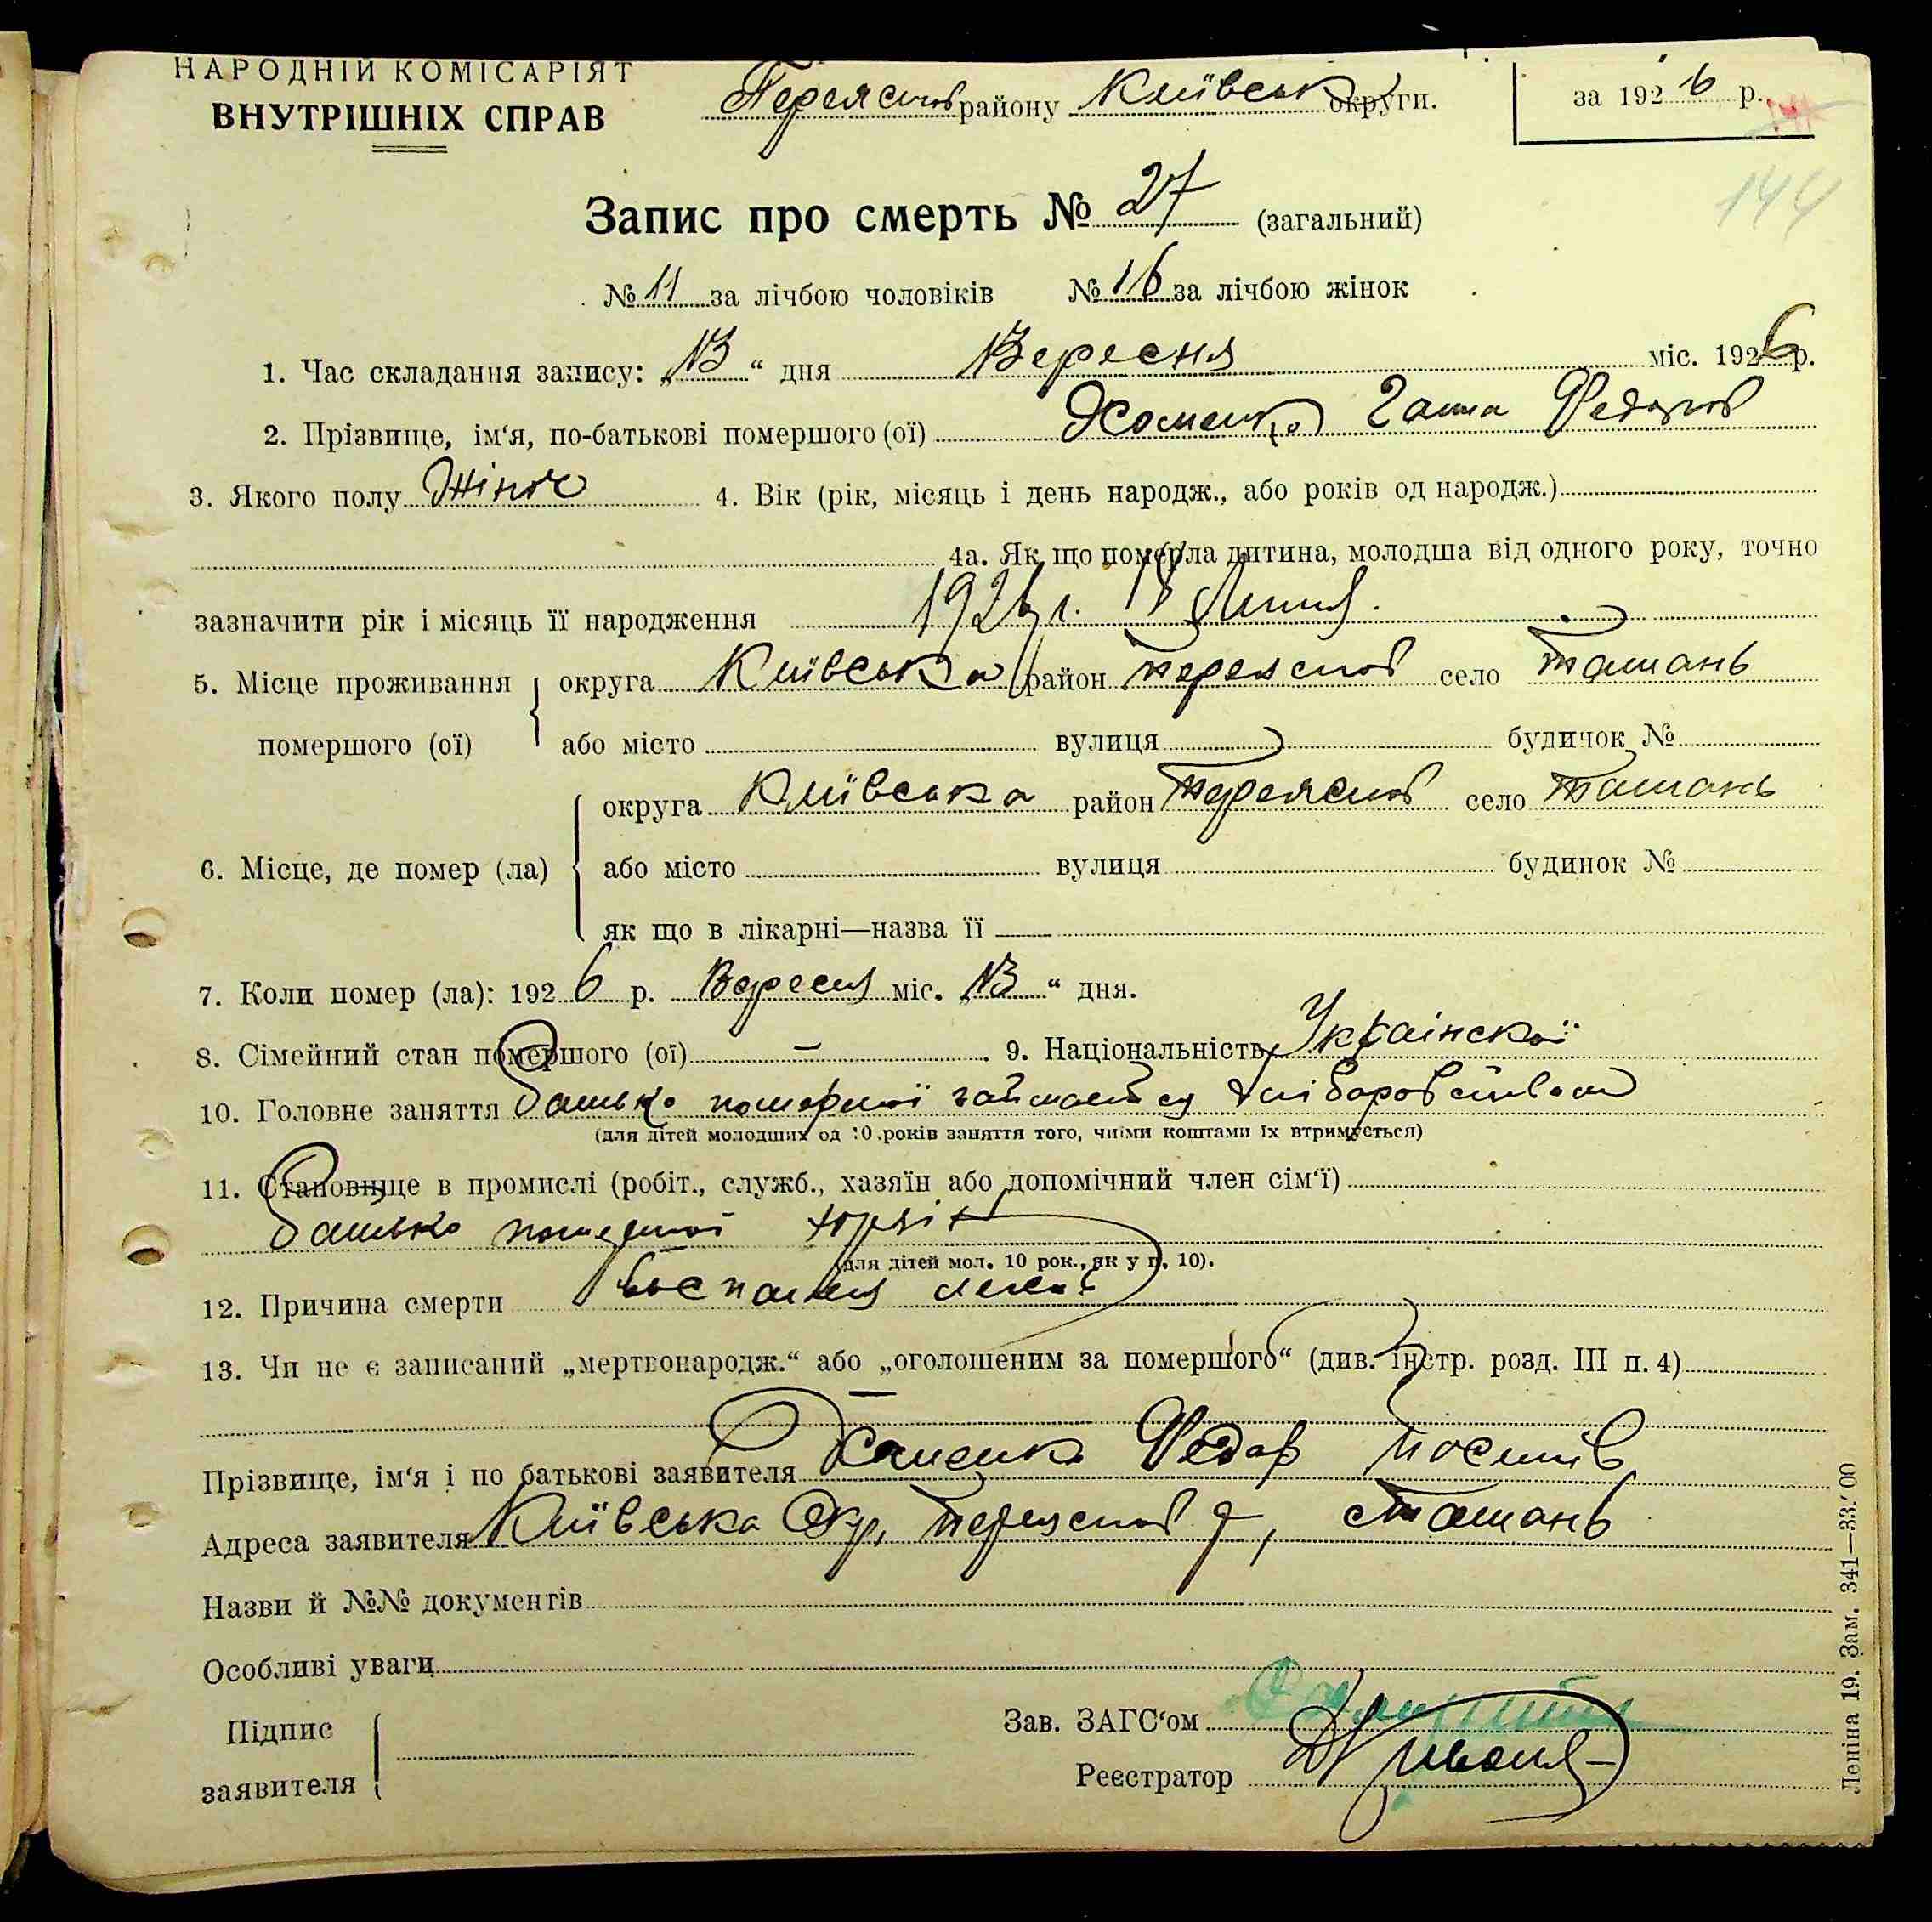 НАРОДНІЙ КОМІСАРІЯТ
ВНУТРІШНІХ СПРАВ
Переяслов району Київськ округи.
за 1926 р.
144
Запис про смерть № 27 (загальний)
№ 11 за лічбою чоловіків № 16 за лічбою жінок
1. Час складання запису: „13“ дня Вересня міс. 1926 р.
2. Прізвище, ім‘я, по-батькові помершого (ої) Хоменко Ганна Федоров
3. Якого полу Жіноч 4. Вік (рік, місяць і день народж., або років од народж.)
4а. Як що померла дитина, молодша від одного року, точно
зазначити рік і місяць її народження 1926 р. 18 Липня.
5. Місце проживання округа Київська район Переяслов село Ташань
помершого (ої) або місто вулиця будинок №
округа Київська район Переяслов село Ташань
6. Місце, де помер (ла) або місто вулиця будинок №
як що в лікарні—назва її
7. Коли помер (ла): 1926 р. Вересня міс. „13“ дня.
8. Сімейний стан помершого (ої) – 9. Національність Українскої
10. Головне заняття батько помершої займается хліборобством
(для дітей молодших од 10 років заняття того, чиїми коштами їх втримується)
11. Становище в промислі (робіт., служб., хазяїн або допомічний член сім‘ї)
батько помершої
(для дітей мол. 10 рок., як у п. 10).
12. Причина смерти
13. Чи не є записаний „мертвонародж.“ або „оголошеним за помершого“ (див. інстр. розд. III п. 4)
Прізвище, ім‘я і по батькові заявителя Хоменко Федор
Адреса заявителя Київська Окр, Переяслов р, с Ташань
Назви й №№ документів
Особливі уваги
Підпис
заявителя
Зав. ЗАГС‘ом
Реєстратор
Леніна 19. Зам. 341—33.‘00